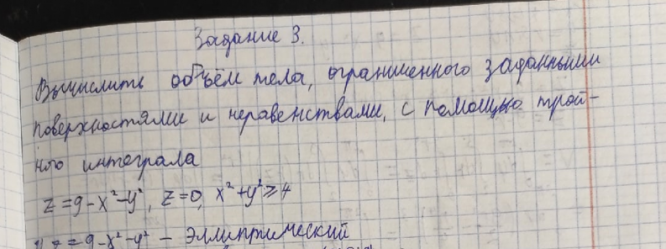 Задание 3.
Вычислить объём тела, ограниченного заданными
поверхностями и неравенствами, с помощью трой-
ного интеграла
z = 9 - x² - y², z = 0, x² + y² ≥ 4
z = 9 - x² - y² - эллиптический